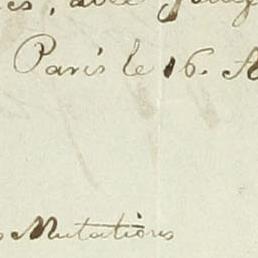 avec
Paris le 16.
Mutations